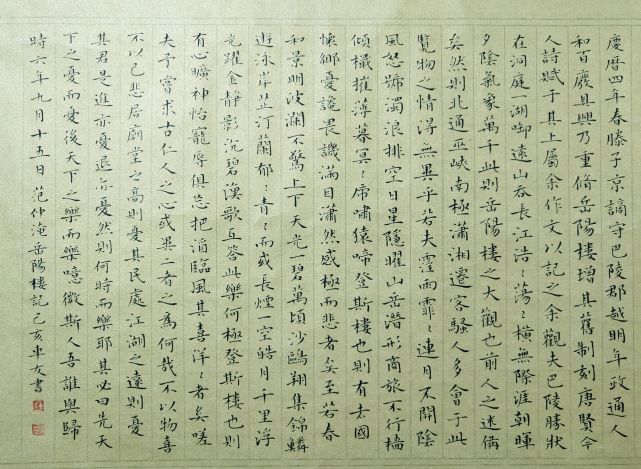 慶曆四年春滕子京謫守巴陵郡越明年政通人
和百廢具興乃重脩岳陽樓增其舊制刻唐賢今
人詩賦于其上屬余作文以記之余觀夫巴陵勝狀
在洞庭一湖啣遠山吞長江浩〻蕩〻橫無際涯朝暉
夕陰氣象萬千此則岳陽樓之大觀也前人之述備
矣然則北通巫峽南極瀟湘遷客騷人多會于此
覽物之情得無異乎若夫霪雨霏〻連月不開陰
風怒號濁浪排空日星隱曜山岳潛形商旅不行檣
傾檝摧薄暮冥〻虎嘯猿啼登斯樓也則有去國
懷鄉憂讒畏譏滿目瀟然感極而悲者矣至若春
和景明波瀾不驚上下天光一碧萬頃沙鷗翔集錦鱗
遊泳岸芷汀蘭郁〻青〻而或長煙一空皓月千里浮
光躍金靜影沉碧漁歌互答此樂何極登斯樓也則
有心曠神怡寵辱俱忘把酒臨風其喜洋〻者矣嗟
夫予嘗求古仁人之心或異二者之為何哉不以物喜
不以己悲居廟堂之高則憂其民處江湖之遠則憂
其君是進亦憂退亦憂然則何時而樂耶其必曰先天
下之憂而憂後天下之樂而樂噫微斯人吾誰與歸
時六年九月十五日范仲淹岳陽樓記己亥車友書